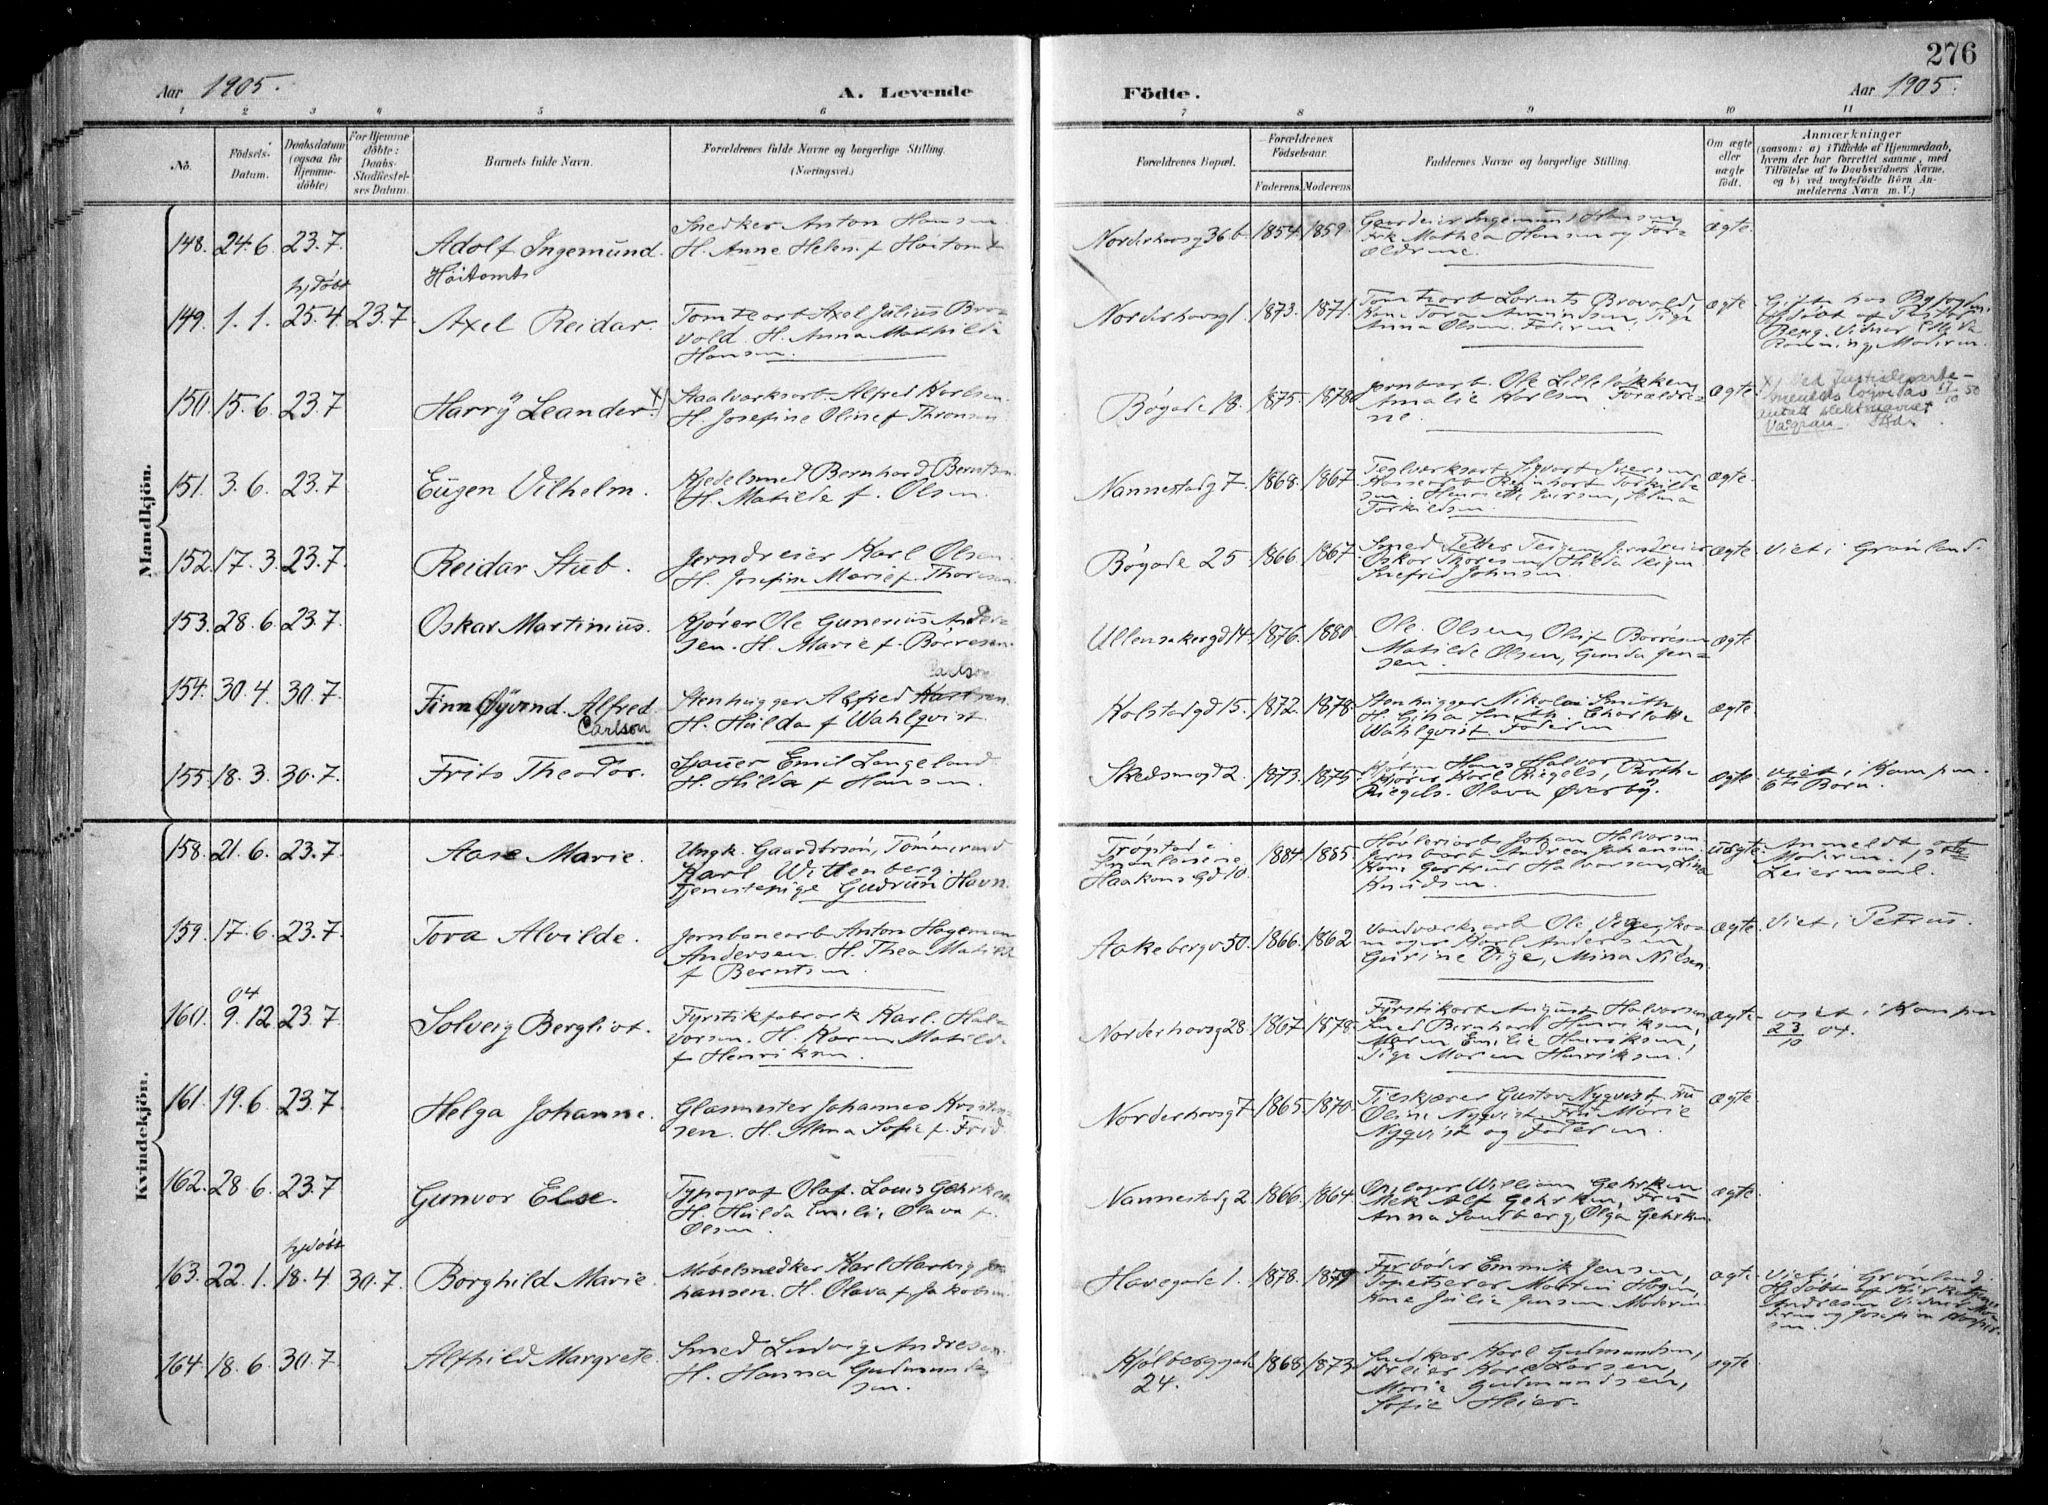 276
Aar 1905.
A. Levende
Födte.
Aar 1905.
1 2 3 4 5 6 7 8 9 10 11
No.
Födsels-Datum.
Daabsdatum (ogsaa for Hjemme-döbte)
For Hjemme döbte: Daabs-Stadfæstel-ses Datum.
Barnets fulde Navn.
Forældrenes fulde Navne og borgerlige Stilling. (Næringsvei.)
Forældrenes Bopæl.
Forældrenes Födselsaar.
Faderens. Moderens.
Faddernes Navne og borgerlige Stilling.
Om ægte eller uægte født.
Anmærkninger
(saasom: a) i Tilfælde af Hjemmedaab,
hvem der har forrettet samme, med
Tilföielse af to Daabsvidners Navne,
og b) ved uægtefödte Börn An-
melderens Navn m. V.)
Mandkjön.
148. 24.6. 23.7. Adolf Ingemund Höitomt
Snedker Anton Hansen
H. Anne Helene f Höitomt
Norderhovsg 36b 1854. 1859.
Gaardeier Ingemund Hansen
Frk Mathea Hansen og For-
ældrene.
ægte.
149. 1.1. hjdöbt 25.4. 23.7. Axel Reidar.
Tomtearb Axel Julius Bra-
vold. H. Anna Mathilde
Hansen.
Norderhovsg 1 1873. 1871.
Tomtearb Lorents Bravold,
Kone Tora Amundsen, Pige
Anna Olsen. Faderen.
ægte.
150. 15.6. 23.7 Harry Leander. x)
Staalværksarb Alfred Karlsen.
H. Josefine Oline f Thronsen
Bögade 18. 1875. 1878.
Jernarb. Ole Lillelökken,
Amalie Karlsen. Forældre-
ne.
ægte.
x) Ved Justisdeparte-
mentets 17/10 50
antatt slektsnavnet
151. 3.6. 23.7 Eugen Vilhelm.
Kjedelsmed Bernhard Berntsen
H. Matilde f. Olsen.
Nannestadg 7. 1868. 1867.
Teglværksarb Sigvart Iversen
Reinhart Torkilds-
sen. Henriette Iversen, Selma
Torkildsen.
ægte.
152. 17.3. 23.7 Reidar Stub.
Jerndreier Karl Olsen.
H. Josefine Marie f. Thoresen
Bögade 25 1866. 1867.
Smed Petter Teigen Jerndreier
Oskar Thoresen, Hilda Teigen
Snefrid Johnsen.
ægte. Viet i Grønland.
153. 28.6. 23.7. Oskar Martinius.
Kjörer Ole Gunerius Ander-
sen. H. Marie f. Börresen.
Ullensakergd 14. 1876. 1880.
Ole Olsen, Oluf Börresen
Matilde Olsen, Gunda Jen-
sen.
ægte
154. 30.4. 30.7. Finn Öyvind. Alfred
Carlson
Stenhugger Alfred Karlsen
Carlson
H. Hulda f Wahlqvist.
Kolstadgd 15. 1872. 1878.
Stenhugger Nikolai Smith,
H. Gina Smith. Charlotte
Wahlqvist. Faderen
ægte.
155. 18.3. 30.7. Frits Theodor.
Sjauer Emil Langeland.
H. Hilda f Hansen.
Skedsmogd 2. 1873. 1875.
Hans Halvorsen
Kjörer Karl Riegels, Berthe
Riegels. Olava Överby.
ægte. Viet i Kampen.
6te Barn.
Kvindekjön.
158. 21.6. 23.7. Aase Marie.
Ungk. Gaardbrsön, Tömmermd
Karl Wittenberg.
Tjenestepige Gudrun Havn.
Trøgstad i
Smaalenene
Haakonsgd 10. 1884. 1885.
Hövleriarb Johan Halvorsen
Andreas Johansen,
Kone Gertrud Halvorsen, Lina
Knudsen.
uægte. Anmeldt af
Moderen. 1ste
Leiermaal.
159. 17.6. 23.7. Tora Alvilde.
Jernbanearb Anton Hageman
Andersen. H. Thea Matilde
f Berntsen.
Aakebergv 50. 1866. 1862
Vandværksarb Ole Vige, Sko-
mager Karl Andersen,
Gurine Vige, Mina Nilsen.
ægte. Viet i Petrus.
160. 04 9.12 23.7. Solveig Bergliot.
Fyrstikfabrark Karl. Hal-
vorsen. H. Karen Matilde
f Henriksen.
Norderhovsg 28. 1867. 1878.
Fyrstikarb August Halvorsen
Smed Bernhard Henriksen,
Maren Emilie Henriksen,
Pige Maren Henriksen.
ægte. Viet i Kampen
23/10 04.
161. 19.6. 23.7. Helga Johanne.
Glasmester Johannes Kristen-
sen. H. Alma Sofie f. Frid.
Norderhovsg 7. 1865. 1870.
Gustav Nyqvist, Fru
Oline Nyqvist. Fru Marie
Nyqvist og Faderen.
ægte.
162. 28.6. 23.7 Gunvor Else.
Typograf Olaf. Louis Gehrken
H. Hulda Emilie Olava f.
Olsen.
Nannestadg 2. 1866. 1864.
William Gehrken
Mek Alf Gehrken, Fru
Anna Sandberg, Olga Gehrken
ægte.
163. 22.1. hjdöbt 18.4 30.7. Borghild Marie.
Möbelsnedker Karl Hartvig Jo-
hansen. H. Olava f Jakobsen.
Havegade 1. 1878. 1879
Fyrböder Emmik Jensen,
Tapetserer Martin Hagen,
Kone Julie Jensen Moderen
ægte. Viet i Grönland.
Hjdöbt af Kirketjener
Andresen Vidner Mo-
deren og Josefine
sen.
164. 18.6. 30.7. Alfhild Margrete.
Smed Ludvig Andresen
H. Hanna Gudmund-
sen.
Kjölberggade
24. 1868. 1873.
Snedker Karl Gudmundsen,
Dreier Karl Larsen,
Marie Gudmundsen,
Sofie Heier.
ægte.